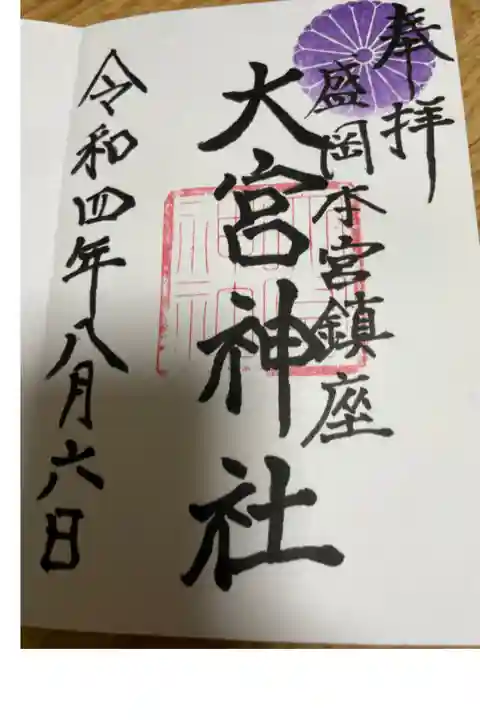 奉拝
盛岡本宮鎮座
大宮神社
令和四年八月六日